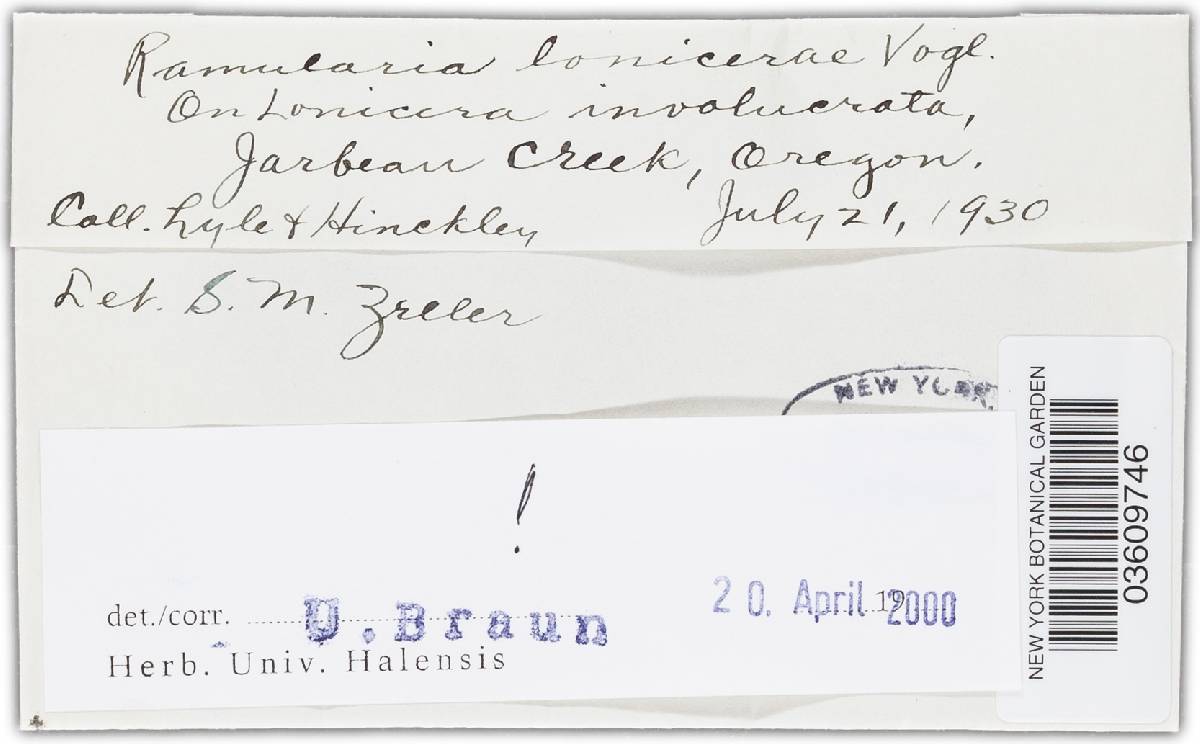 Ramularia lonicerae Vogl.
On Lonicera involucrata,
Jarbeau Creek, Oregon.
Coll. Lyle & Hinckley July 21, 1930
Det. S. M. Zeller
NEW YORK
!
det./corr. U. Braun 20. April 19 2000
Herb. Univ. Halensis
NEW YORK BOTANICAL GARDEN
03609746